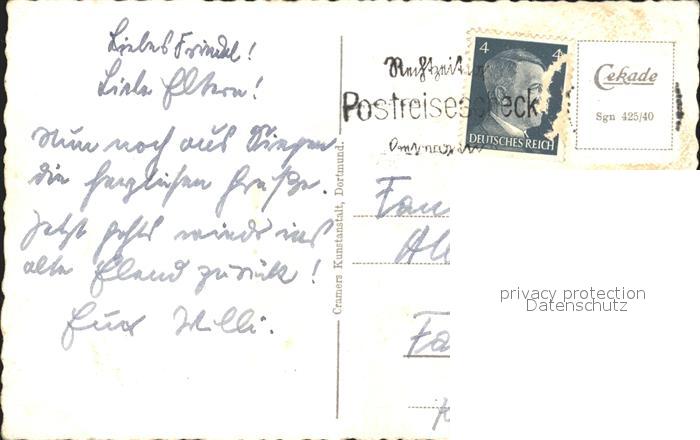 Liebes Friedel!
Liebe Eltern!
Nun noch aus Siegen
die herzlichen Grüße.
Jetzt gehts wieder ins
alte Elend zurück!
Euer Willi.
Cramers Kunstanstalt, Dortmund.
Rechtzeitig
Postreisescheck
4 4
DEUTSCHES REICH
Cekade
Sgn 425/40
Fam
Fa
privacy protection
Datenschutz